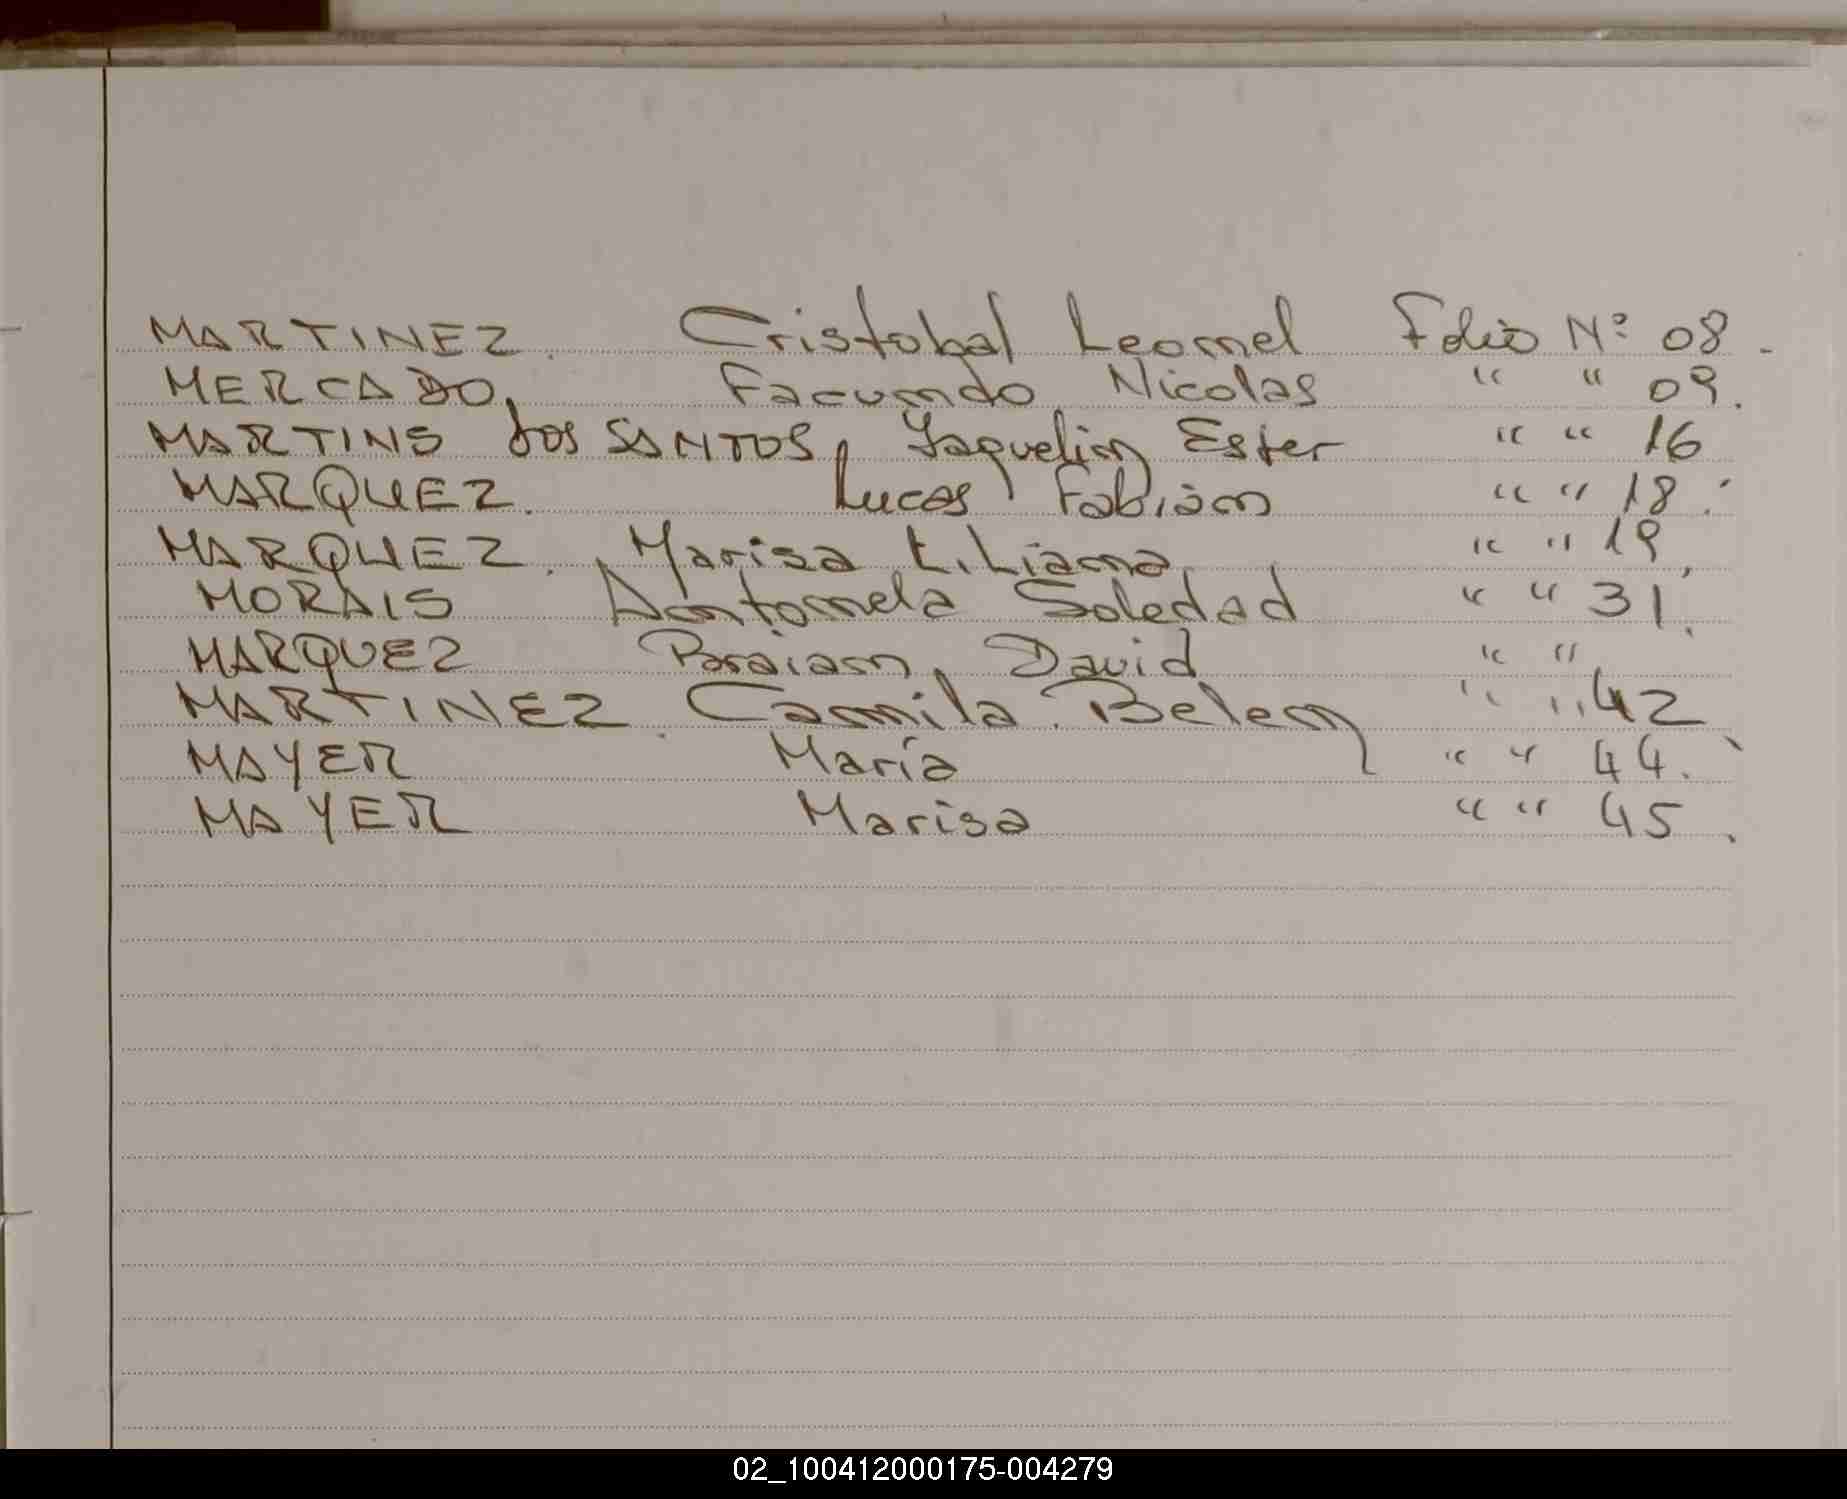 MARTINEZ. Cristobal Leonel Folio Nº 08.
MERCADO, Facundo Nicolas " " 09.
MARTINS dos SANTOS, Yaquelin Ester " " 16
MARQUEZ. Lucas Fabián " " 18.
MARQUEZ. Marisa Liliana " " 19.
MORAIS Antonela Soledad " " 31.
MARQUEZ Braian David " "
MARTINEZ. Camila Belen " " 42
MAYER María " " 44.
MAYER Marisa " " 45.
02_100412000175-004279